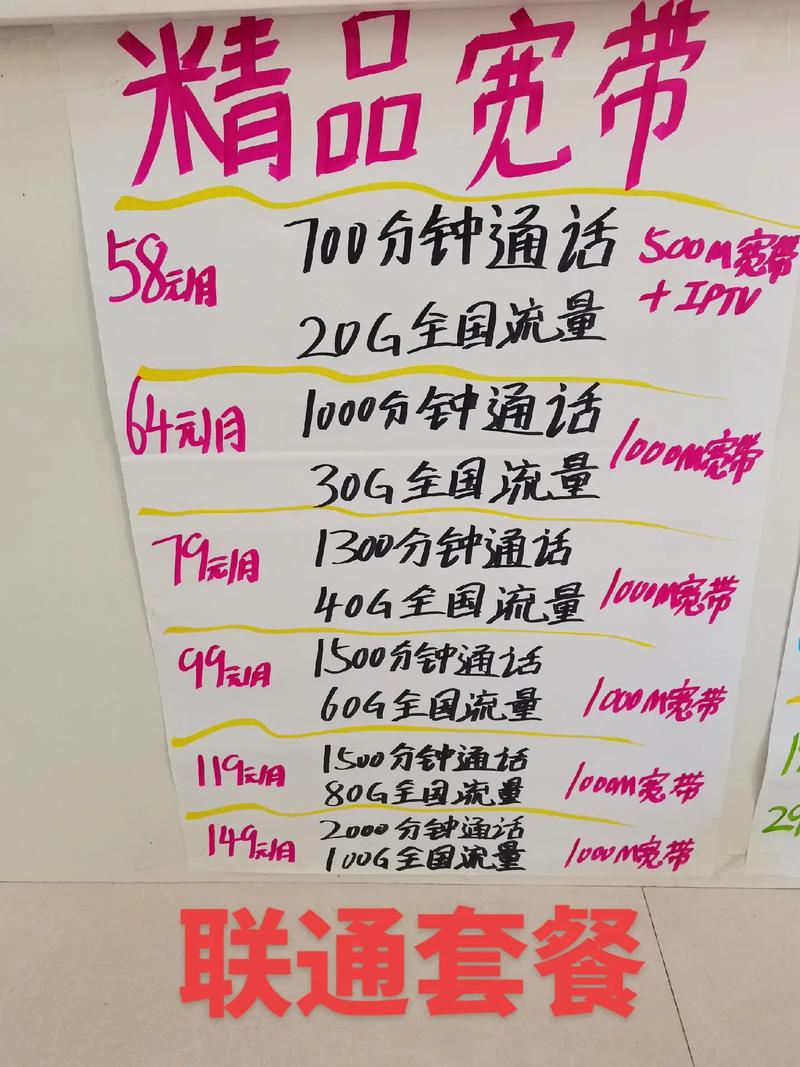 精品宽带
58元/月 700分钟通话 500M宽带
20G全国流量 +IPTV
64元/月 1000分钟通话 1000M宽带
30G全国流量
79元/月 1300分钟通话
40G全国流量 1000M宽带
99元/月 1500分钟通话
60G全国流量 1000M宽带
119元/月 1500分钟通话 1000M宽带
80G全国流量
149元/月 2000分钟通话 1000M宽带
100G全国流量
联通套餐